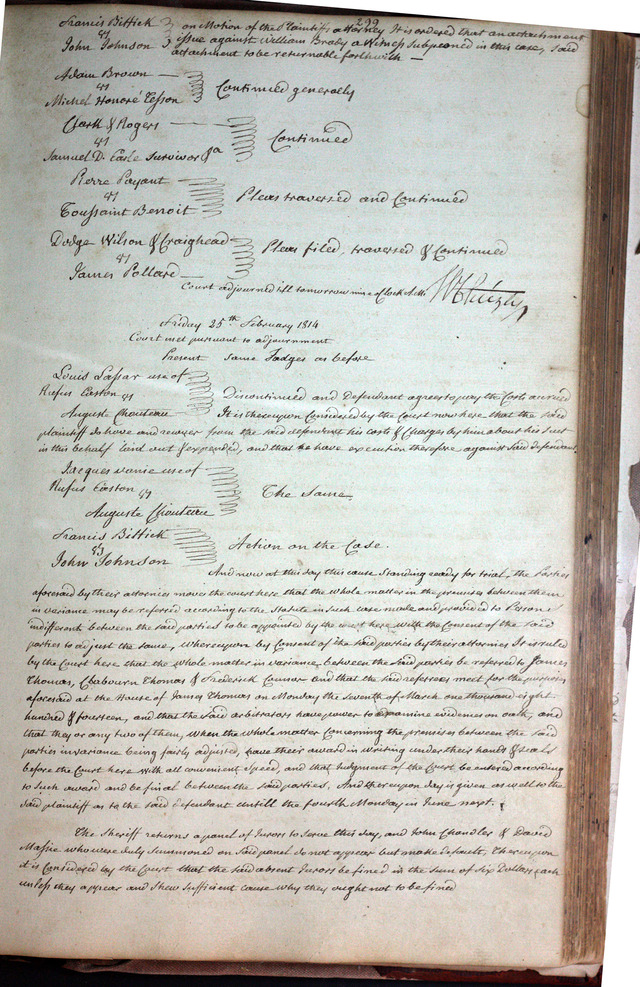 299
Francis Bittick } on Motion of the Plaintiffs attorney It is ordered that an attachment
vs
John Johnson } issue against William Brady a Witness Subpoened in this case, Said
attachment to be returnable forthwith —
Adam Brown —
vs Continued generally
Michel Honoré Tesson
Clark & Rogers —
vs Continued
Samuel D. Earle Survivor &a
Pierre Payant —
vs Pleas traversed and Continued
Toussaint Benoit —
Dodge Wilson & Craighead
vs Pleas filed, traversed & Continued
James Pollard —
Court adjourned till tomorrow nine oClock A.M.
Friday 25th February 1814
Court met pursuant to adjournment
Present Same Judges as before
Louis Lassar use of
Rufus Easton vs Discontinued and Defendant agrees to pay the Costs accrued
Auguste Chouteau — It is thereupon Considered by the Court now here that the said
plaintiff do have and recover from the said defendant his costs & Charges by him about his Suit
in this behalf laid out & expended, and that he have execution therefore against Said defendant
Jacques vanie use of
Rufus Easton vs The Same
Auguste Chouteau
Francis Bittick
vs Action on the Case.
John Johnson
And now at this day this cause Standing ready for trial, the Parties
aforesaid by their attornies moves the court here that the whole matter in the premises between them
in variance may be referred according to the Statute in Such case made and provided to Persons
indifferent between the said parties to be appointed by the court here with the Consent of the said
parties to adjust the same, Whereupon by Consent of the said parties by their attornies It is ruled
by the Court here that the whole matter in variance between the Said parties be referred to James
Thomas, Claibourn Thomas & Frederick Connor and that the Said referees meet for the purposes
aforesaid at the House of James Thomas on Monday the Seventh of March one thousand eight
hundred & fourteen, and that the Said arbitrators have power to examine widenes on oath, and
that they or any two of them, when the whole matter Concerning the premises between the Said
parties in variance being fairly adjusted, have their award in writing under their hands & seals
before the Court here with all convenient Speed, and that Judgment of the Court be entered according
to Such award and be final between the said parties. And thereupon day is given as well to the
Said plaintiff as to the said defendant untill the fourth Monday in June next.
The Sheriff returns a panel of Jurors to Serve this day, and John Chandler & David
Massie who were duly Summoned on Said panel do not appear but make default, Thereupon
it is Considered by the Court that the said absent Jurors be fined in the sum of Six Dollars each
unless they appear and Shew Sufficient cause why they ought not to be fined